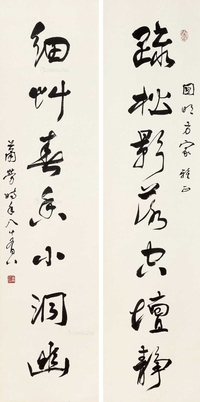 疏松影落空坛静
国明方家雅正
细草春香小洞幽
萧劳时年八十有八